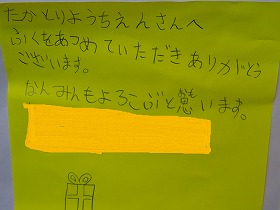 たかとりようちえんさんへ
ふくをあつめていただきありがとう
ございます。
なんみんもよろこぶと思います。
おも